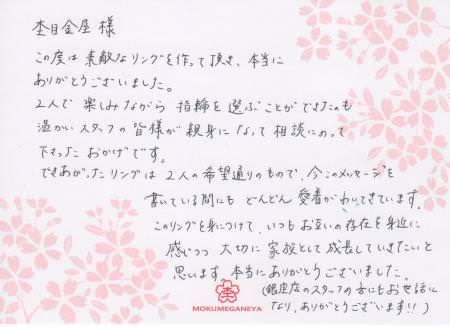 杢目金屋 様
この度は素敵なリングを作って頂き、本当に
ありがとうございました。
2人で楽しみながら指輪を選ぶことができたのも
温かいスタッフの皆様が親身になって相談にのって
下さったおかげです。
できあがったリングは2人の希望通りのもので、今このメッセージを
書いている間にもどんどん愛着がわいてきています。
このリングを身につけて、いつもお互いの存在を身近に
感じつつ大切に家族として成長していきたいと
思います。本当にありがとうございました。
(銀座店のスタッフの方にもお世話に
なり、ありがとうございます!!)
MOKUMEGANEYA